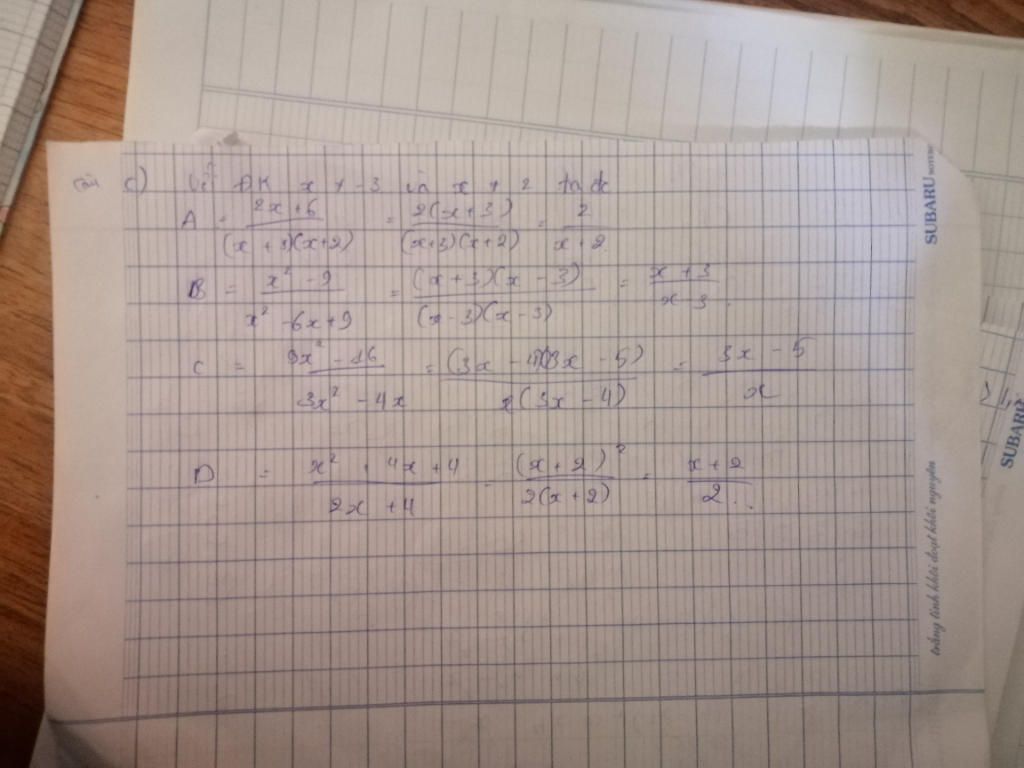 Câu c) Với ĐK x ≠ -3 và x ≠ 2 ta đc
A = \frac{2x+6}{(x+3)(x+2)} = \frac{2(x+3)}{(x+3)(x+2)} = \frac{2}{x+2}
B = \frac{x² - 9}{x² - 6x + 9} = \frac{(x+3)(x-3)}{(x-3)(x-3)} = \frac{x+3}{x-3}.
C = \frac{9x² - 16}{3x² - 4x} = \frac{(3x - 4)(3x - 5)}{x(3x - 4)} = \frac{3x - 5}{x}
D = \frac{x² + 4x + 4}{2x + 4} = \frac{(x+2)²}{2(x+2)} = \frac{x+2}{2}.
SUBARU
trắng tinh khôi đoạt khôi nguyên
SUBARU